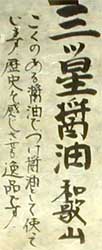 三ッ星醤油 和歌山
こくのある醤油でつけ醤油として使て
います!歴史を感じさせる逸品です!